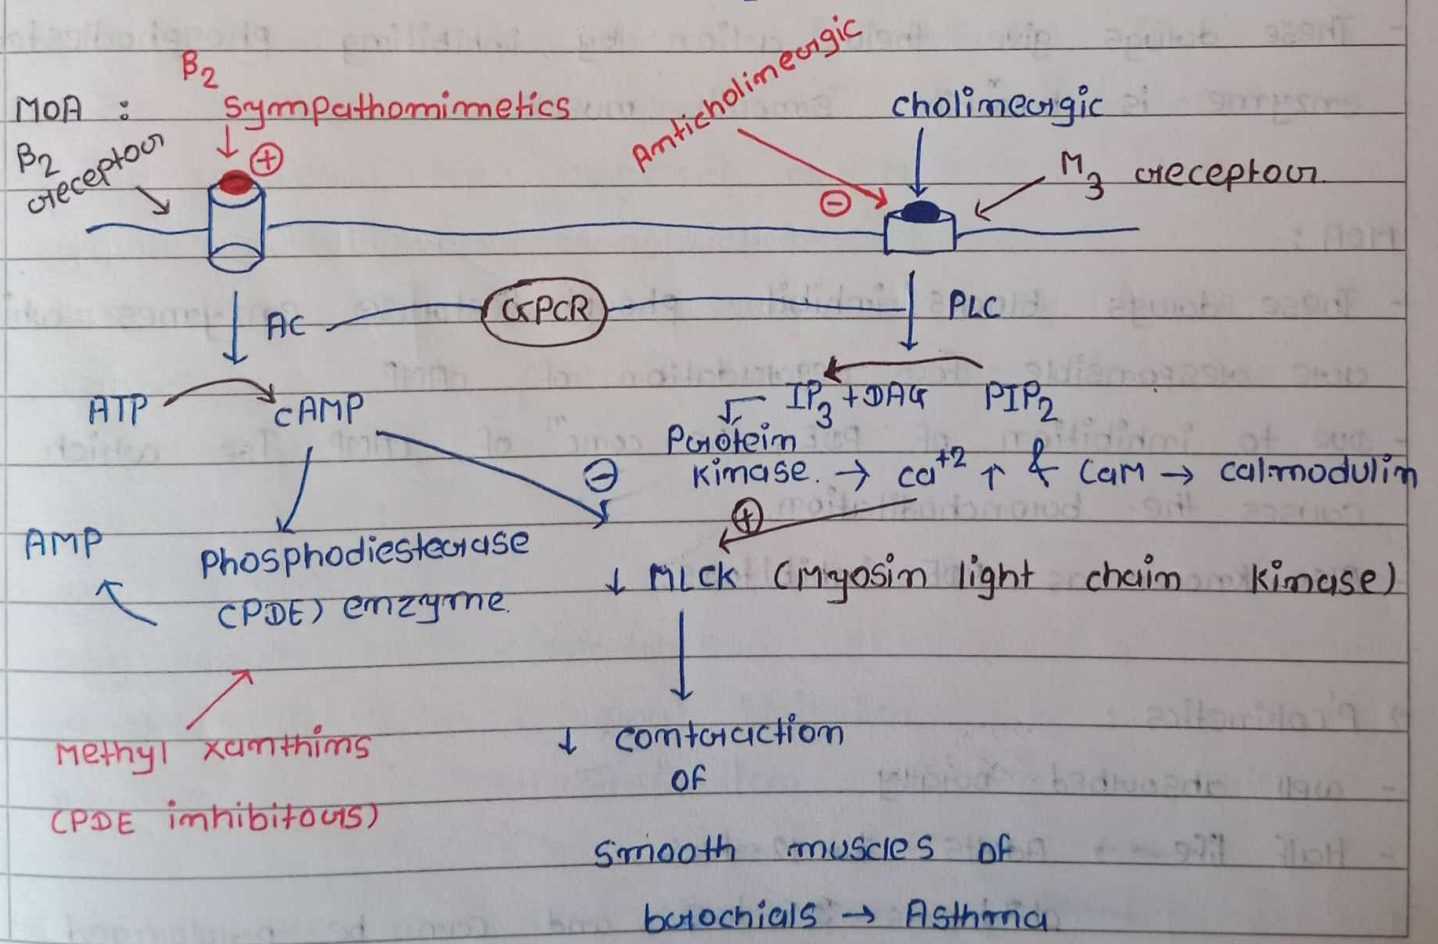 β2
MOA : Sympathomimetics
Anticholinergic
cholinergic
β2 receptor
⊕
⊖
M3 receptor
AC
GPCR
PLC
ATP
cAMP
IP3 + DAG
PIP2
Protein
Kinase. → ca+2 ↑ & CaM → calmodulin
⊖
⊕
AMP
Phosphodiesterase
(PDE) enzyme.
↓ MLCK (Myosin light chain kinase)
Methyl xanthins
(PDE inhibitors)
↓ contraction
of
smooth muscles of
brochials → Asthma